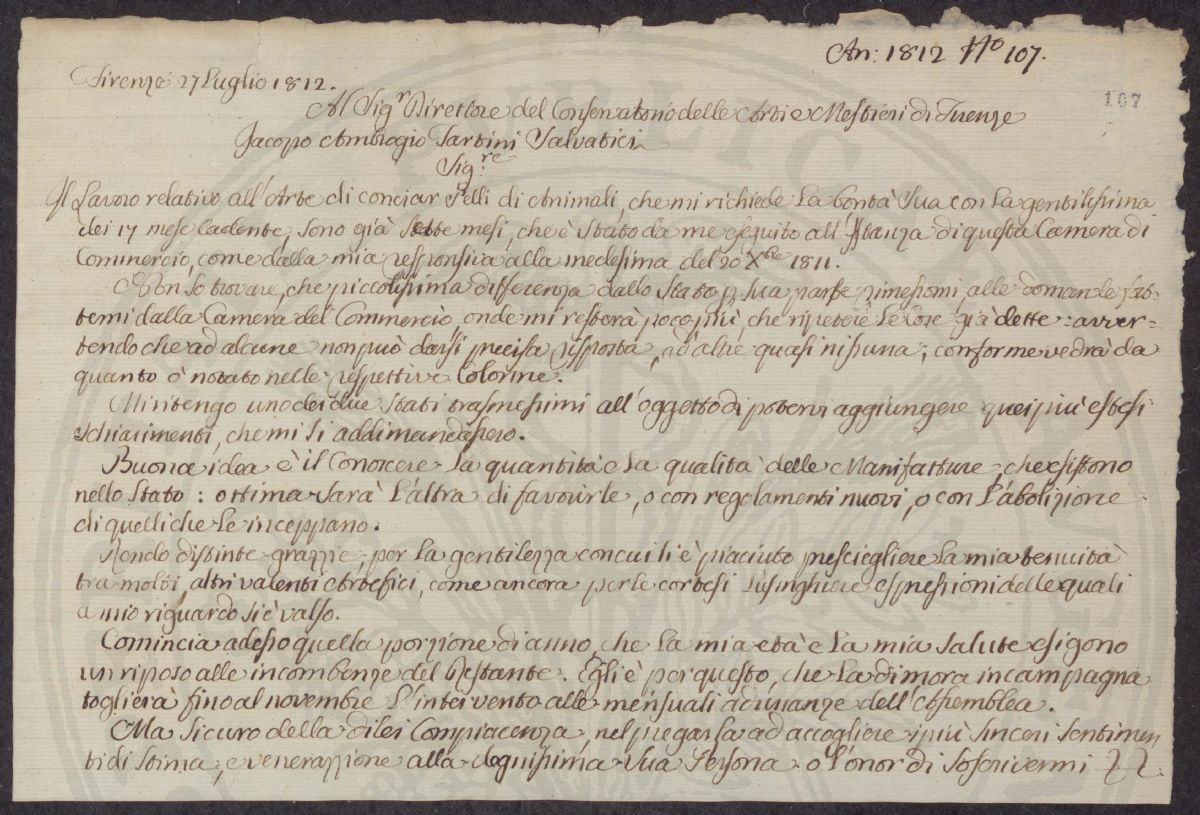 An: 1812 No 107.
Firenze 27 Luglio 1812.
107
Al Sigr Direttore del Conservatorio delle Arti e Mestieri di Firenze
Jacopo Ambrogio Tartini Salvatici
Sig.re
Il Lavoro relativo all'Arte di conciar Pelli di Animali, che mi richiede La bontà Sua con La gentilissima
dei 17 mese Cadente, sono già Sette mesi, che è stato da me eseguito all'Istanza di questa Camera di
Commercio, come dalla mia responsiva alla medesima del 20 Xbre 1811.
Non so trovare, che piccolissima differenza dallo Stato p Sua parte rimessomi, alle domande fat-
temi dalla Camera del Commercio, onde mi resterà poco più che ripetere Le Cose già dette: avver-
tendo che ad alcune non può darsi precisa risposta, ad altre quasi nissuna; conforme vedrà da
quanto ò notato nelle respettive Colonne.
Mi ritengo uno dei due Stati trasmessimi all'oggetto di potervi aggiungere quei più estesi
schiarimenti, che mi si addimandassero.
Buona idea è il Conoscere La quantità e La qualità delle Manifatture, che esistono
nello Stato: ottima sarà L'altra di favorirle, o con regolamenti nuovi, o con L'abolizione
di quelli che Le inceppano.
Rendo distinte grazzie, per La gentilezza con cui li è piaciuto presciegliere La mia tenuità
tra molti altri valenti Artefici, come ancora per le cortesi Lusinghiere espressioni delle quali
a mio riguardo si è valso.
Comincia adesso quella porzione di anno, che La mia età e La mia salute esigono
un riposo alle incombenze del restante. Egli è per questo, che La dimora in campagna
toglierà fino al novembre L'intervento alle mensuali adunanze dell'Assemblea.
Ma sicuro della di lei Compiacenza, nel pregarla ad accogliere i più sinceri sentimen
ti di stima, e venerazzione alla degnissima Sua Persona ò l'onor di soscrivermi